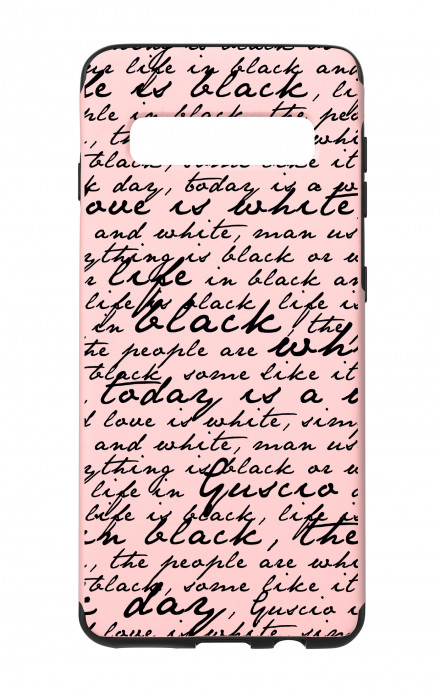 is black or
life in black and
e is black, li
in black, the peo
, th whi
black, some like it
k day, today is a w
ove is white
and white, man us
ything is black or w
r life in black an
life is black, life is
in black, the
he people are wh
black, some like it
, today is a w
d love is white, sim
and white, man us
ything is black or w
life in Guscio a
life is black, life is
in black, the
, the people are whi
black, some like it
k day, Guscio i
love is white, sim